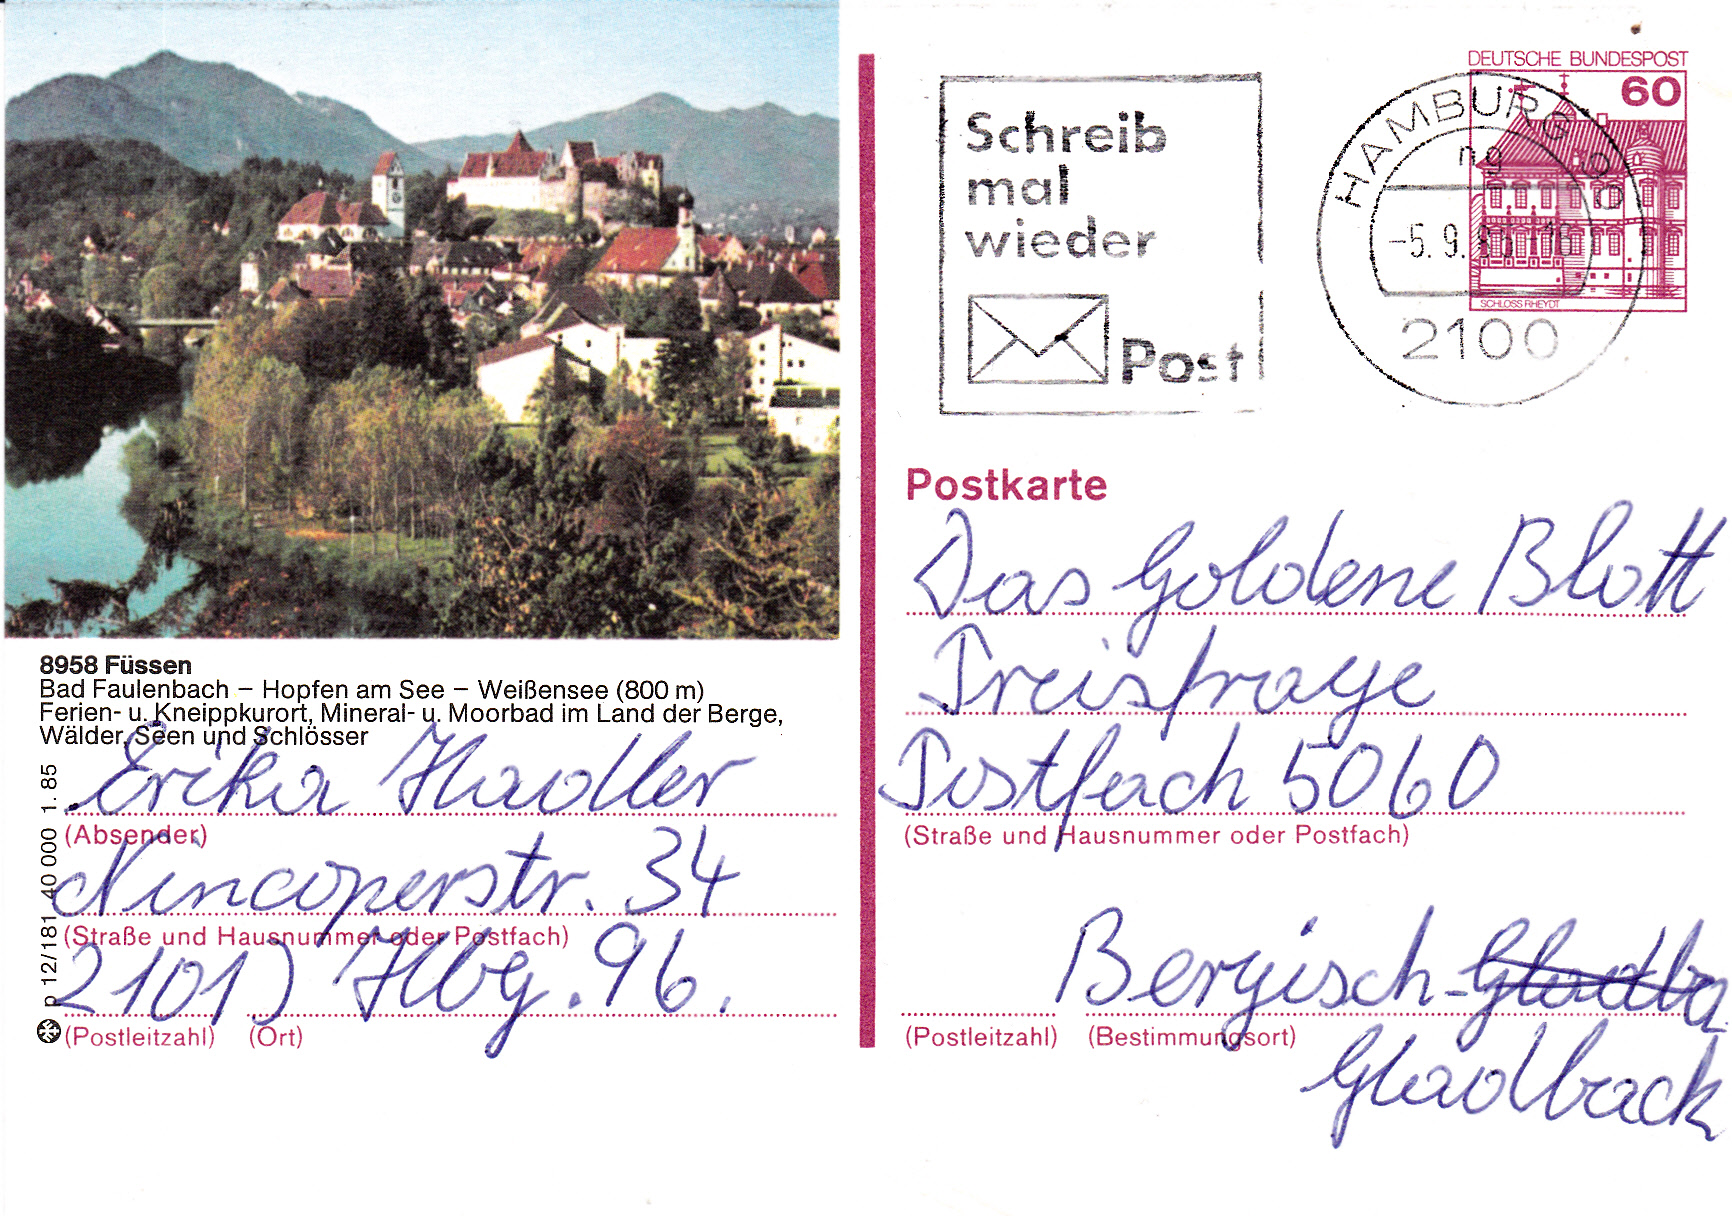 8958 Füssen
Bad Faulenbach – Hopfen am See – Weißensee (800 m)
Ferien- u. Kneippkurort, Mineral- u. Moorbad im Land der Berge,
Wälder, Seen und Schlösser
Erika Hadler
(Absender)
Nincoperstr. 34
(Straße und Hausnummer oder Postfach)
2101) Hbg. 96.
(Postleitzahl) (Ort)
p 12/181 40 000 1. 85
Schreib
mal
wieder
Post
HAMBURG 90
ng
-5. 9. 85-18
2100
DEUTSCHE BUNDESPOST
60
SCHLOSS RHEYDT
Postkarte
Das Goldene Blatt
Preisfrage
Postfach 5060
(Straße und Hausnummer oder Postfach)
Bergisch-Gladba
(Postleitzahl) (Bestimmungsort)
Gladback